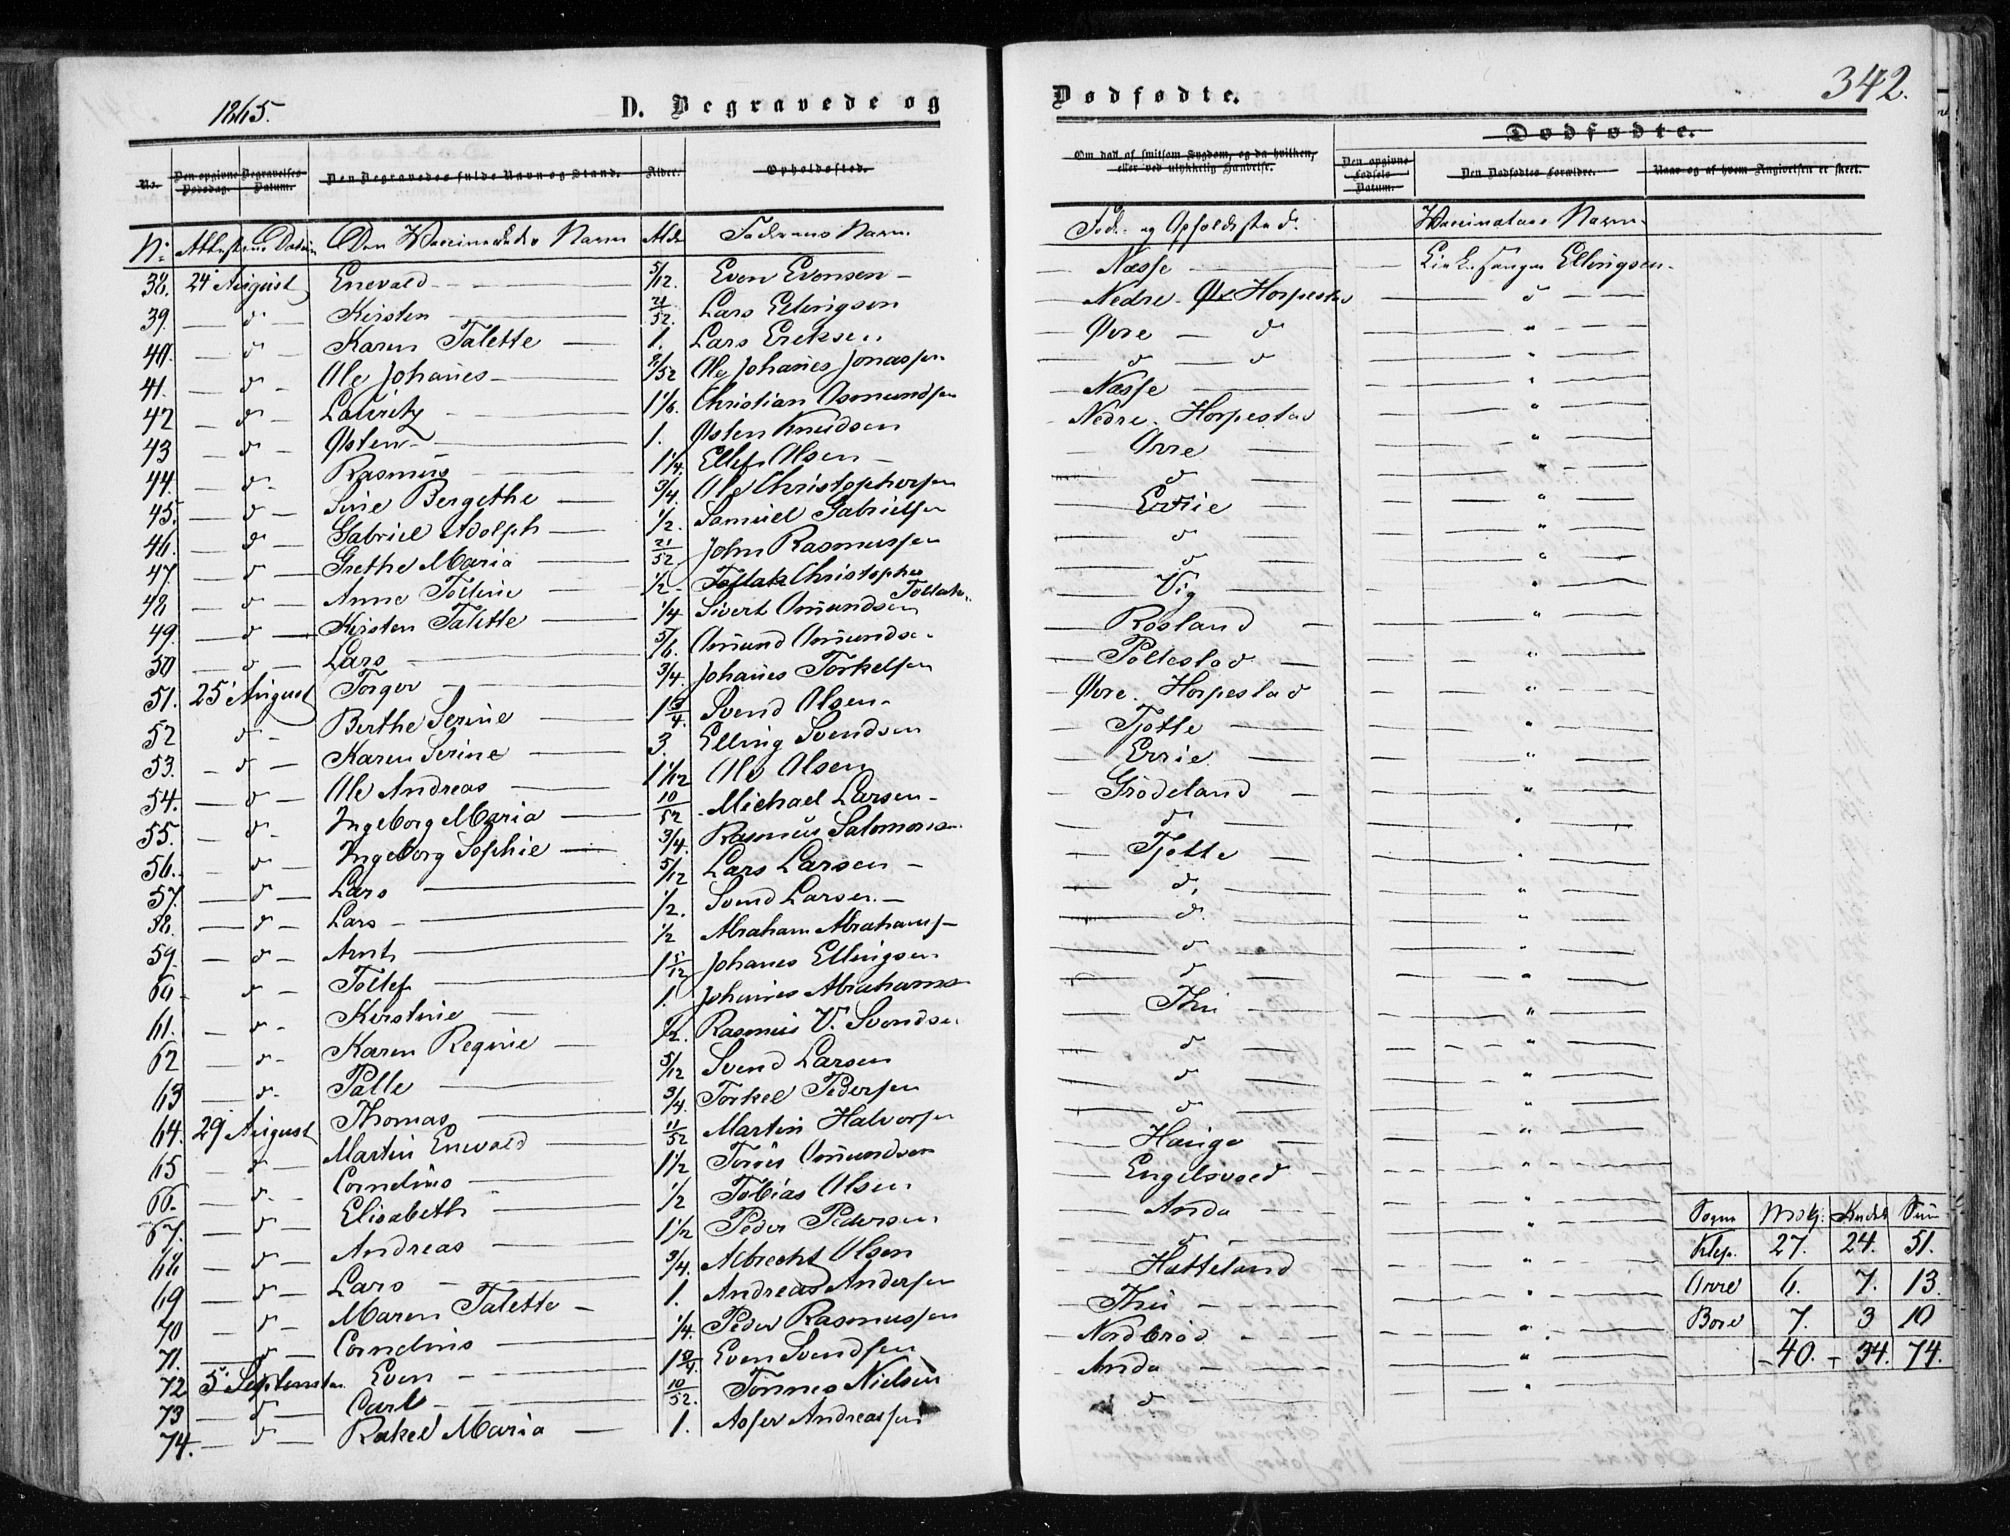 1865.
D. Begravede og
No.
Den opgivne Dødsdag.
Begravelses Datum.
Den Begravedes fulde Navn og Stand.
Alder.
Opholdssted.
No: Attestens Datum Den Vaccineredes Navn Alder Faderens Navn.
38. 24 August Enevald 5/12. Even Evensen
39. d Kirsten 21/52. Lars Ellingsen
40. d Karen Talette 1. Lars Eriksen
41. d Ole Johanes /52 Ole Johanes Jonassen
42 d Lauritz 1 1/6. Christian Osmundsen
43 d Østen 1. Østen Knudsen
44. d Rasmus 1 1/4. Ellef Olsen
45. d Sine Bergethe 3/4. Ole Christophersen
46. d Gabriel Adolph 1/2. Samuel Gabrielsen
47. d Grethe Maria 21/52 John Rasmussen
48. d Anne Tolline 1/2 Tollak Christopher Tollaks.
49. d Kirsten Talette 1/4 Sivert Omundsen
50 d Lars 5/6. Omund Omundse.
51. 25 August Torger 3/4. Johanes Torkelsen
52 d Berthe Serine 1 3/4. Svend Olsen
53. d Karen Serine 3. Elling Svendsen
54. d Ole Andreas 1 1/12 Ole Olsen
55. d Ingeborg Maria 10/52 Michael Larsen
56. d Ingeborg Sophie 3/4. Rasmus Salomons.
57. d Lars 5/12 Lars Larsen
58. d Lars 1/2. Svend Larsen
59. d Arnt 1/2 Abraham Abrahams
60. d Tollef 1 5/12 Johanes Ellingsen
61. d Kirstine 1. Johannes Abrahams
62 d Karen Regine 1/2. Rasmus V. Svendsen
63 d Palle 5/12 Svend Larsen
64. 29 August Thomas 3/4. Torkel Pedersen
65 d Martin Enevald 11/52 Martin Halvorsen
66. d Cornelius 1 1/2 Tørres Omundsen
67. d Elisabeth 1/2 Tobias Olsen
68 d Andreas 1 1/2 Peder Pedersen
69 d Lars 3/4. Albrecht Olsen
70 d Maren Talette 1. Andreas Andersen
71. d Cornelius 1/4. Peder Rasmussen
72 5 September Even 1 3/4. Even Svendsen
73 d Carl 10/52. Tønnes Nielsen
74. d Rakel Maria 1. Asser Andreassen
342.
Dødfødte.
Om død af smitsom Sygdom, og da hvilken, eller ved ulykkelig Hændelse.
Dødfødte.
Den opgivne Fødsels Datum.
Den Dødfødtes Forældre.
Naar og af hvem Angivelsen er skeet.
Føde- og Opholdssted. Vaccinateurs Navn.
Næsse Ellingsen
Nedre Horpestad d
Øvre d "
d d "
Næsse "
Nedre Horpestad "
Orre "
d "
Errie "
d "
d "
Vig "
Rosland "
Pollestad "
Øvre Horpestad "
Tjøtte "
Errie "
Grødeland "
d "
Tjøtte "
d "
d "
d "
d "
Thu "
d "
d "
d "
Hauge "
Engelsvoed "
Anda "
d "
Hatteland "
Thu "
Nordbrød "
Anda "
d "
Sogn Mdkj. Kvdkj Sum
Klep. 27. 24. 51.
Orre 6. 7. 13.
Bore 7. 3 10
40. 34. 74.